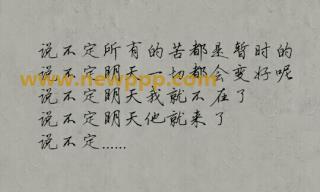 说不定所有的苦都是暂时的
说不定明天一切都会变好呢
www.newppp.com
说不定明天我就不在了
说不定明天他就来了
说不定……